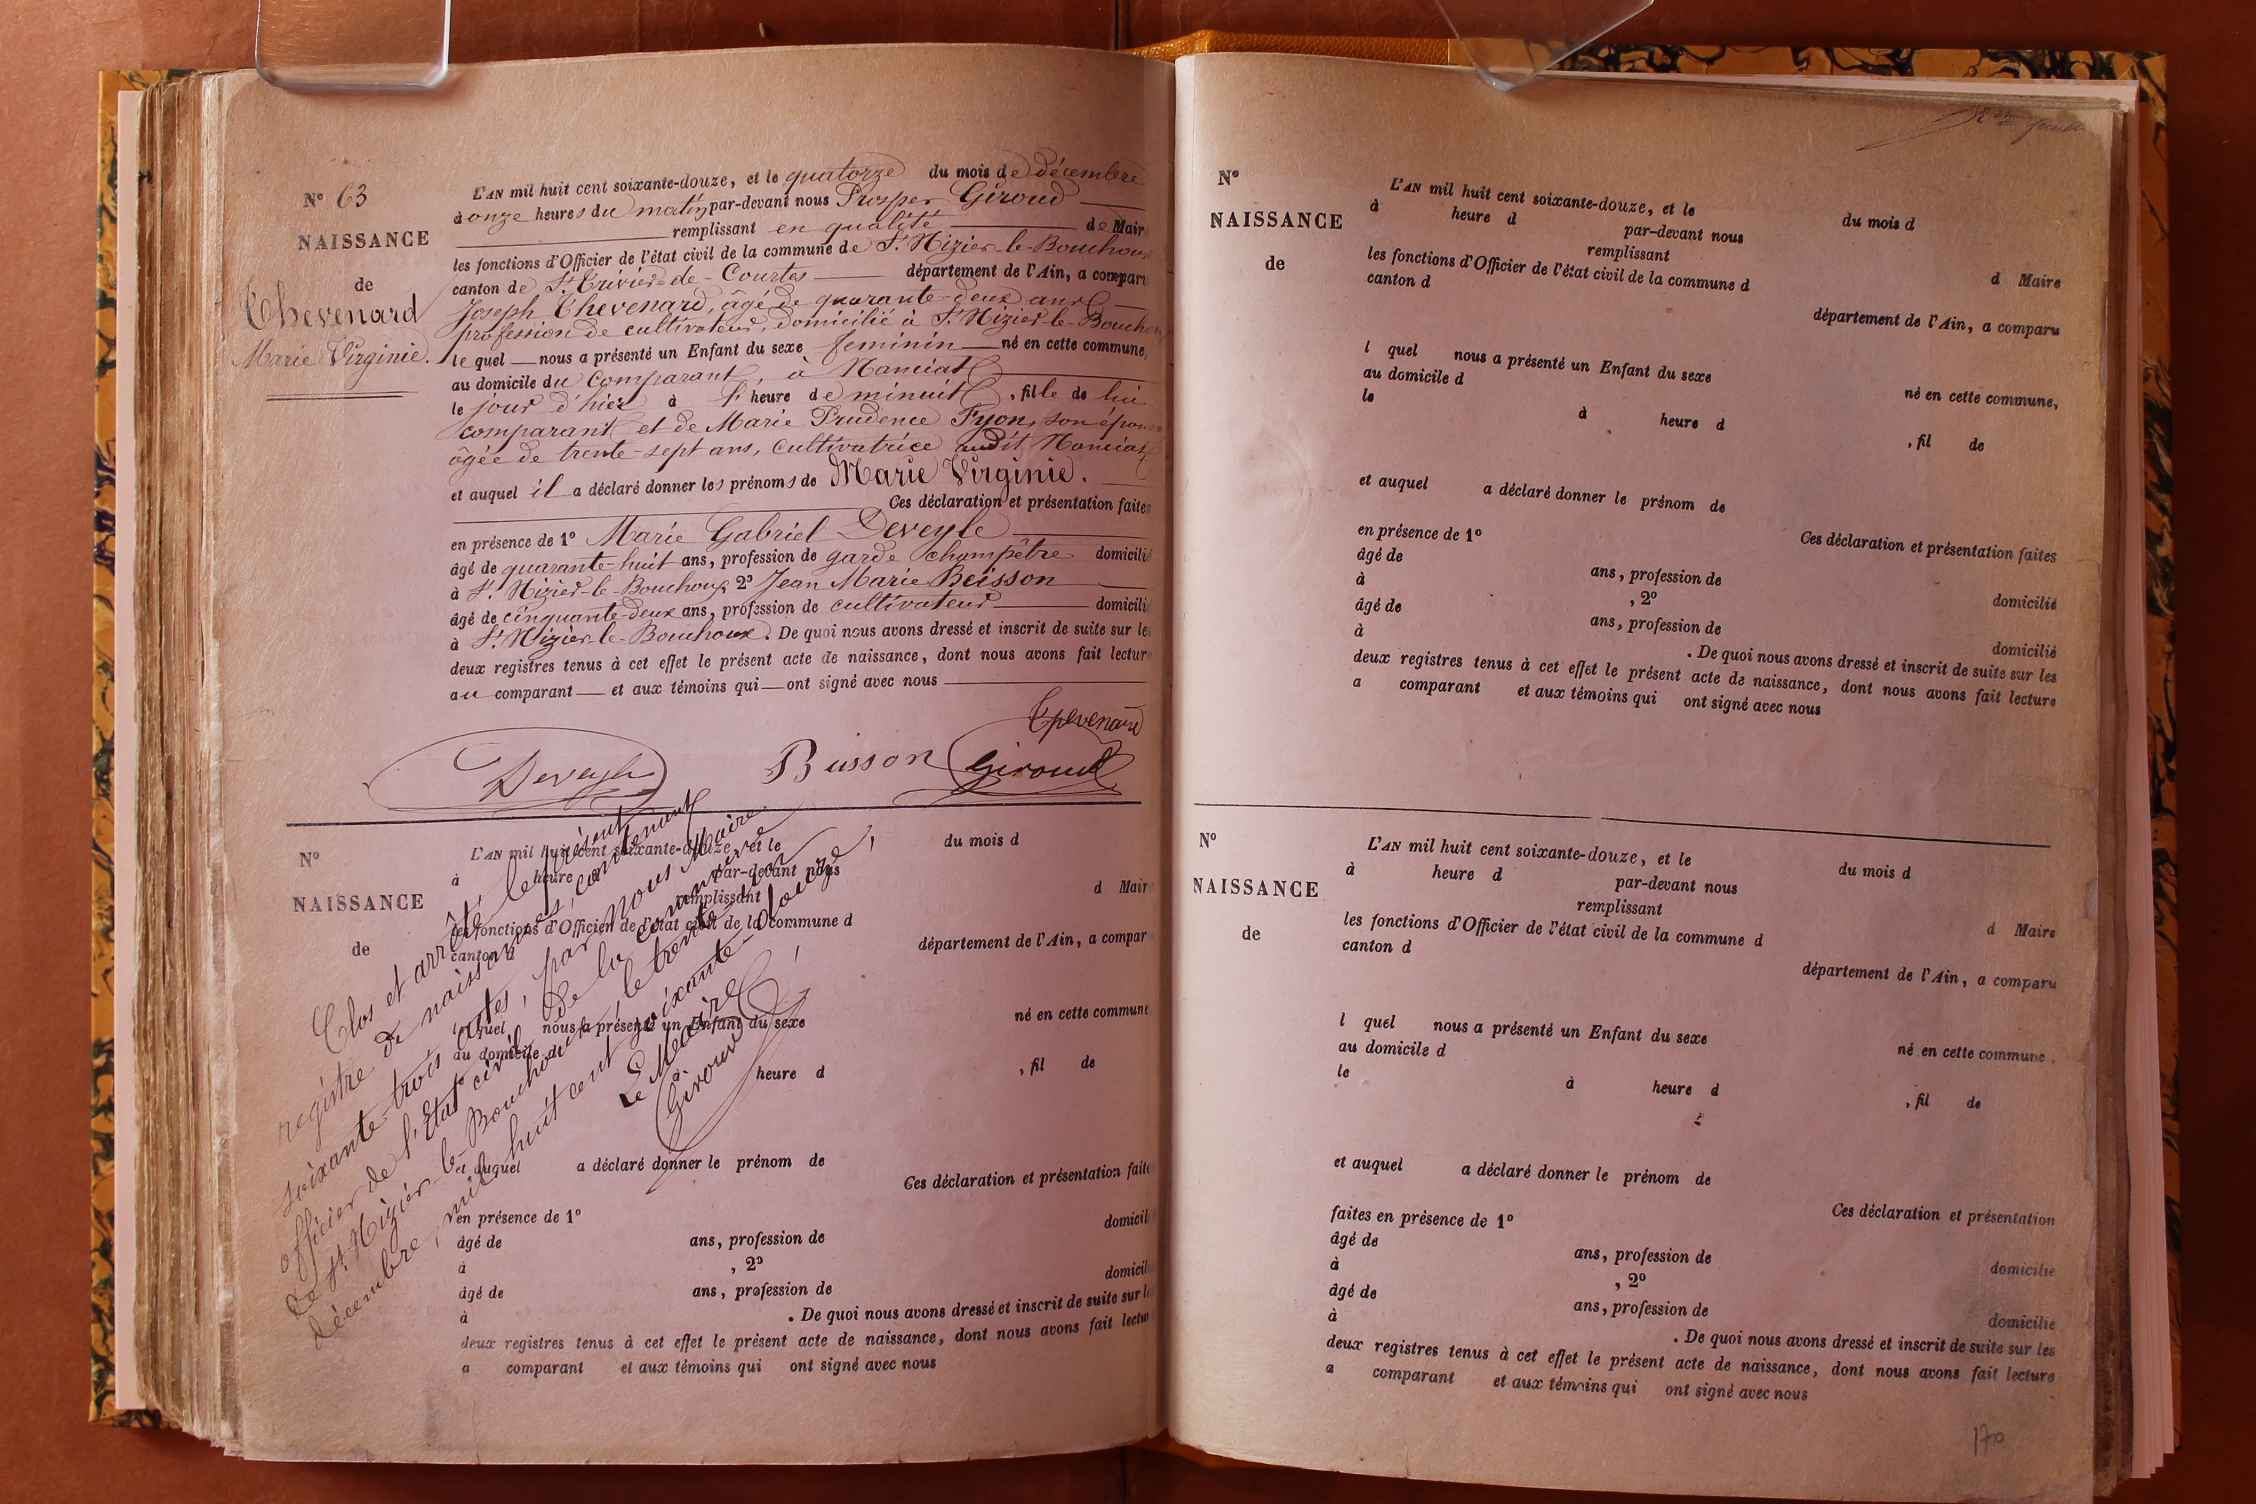 N° 63
NAISSANCE
de
Chevenard
Marie Virginie.
L'AN mil huit cent soixante-douze, et le quatorze du mois de décembre
à onze heures du matin par-devant nous Prosper Giroud
remplissant en qualité de Mair
les fonctions d'Officier de l'état civil de la commune de St Nizier-le-Bouchoux
canton de St Trivier-de-Courtes département de l'Ain, a comparu
Joseph Chevenard, âgé de quarante-deux ans
profession de cultivateur, domicilié à St Nizier-le-Bouchoux
le quel nous a présenté un Enfant du sexe feminin né en cette commune,
au domicile du comparant, à Nanciat
le jour d'hier à l'heure de minuit, fille de lui
comparant et de Marie Prudence Fyon, son épouse
âgée de trente-sept ans, cultivatrice audit Nanciat
et auquel il a déclaré donner les prénoms de Marie Virginie.
Ces déclaration et présentation faites
en présence de 1° Marie Gabriel Deveyle
âgé de quarante-huit ans, profession de garde champêtre domicilié
à St Nizier-le-Bouchoux 2° Jean Marie Beisson
âgé de cinquante-deux ans, profession de cultivateur domicilié
à St Nizier-le-Bouchoux. De quoi nous avons dressé et inscrit de suite sur les
deux registres tenus à cet effet le présent acte de naissance, dont nous avons fait lecture
au comparant et aux témoins qui ont signé avec nous
Chevenard
Deveyle Buisson Giroud
N°
NAISSANCE
de
L'AN mil huit cent soixante-douze, et le du mois d
à heure par-devant nous
remplissant d Maire
les fonctions d'Officier de l'état civil de la commune d
canton d département de l'Ain, a compar
l quel nous a présenté un Enfant du sexe né en cette commune
au domicile d
à heure d , fil de
et auquel a déclaré donner le prénom de
Ces déclaration et présentation faite
en présence de 1°
âgé de ans, profession de domicil
à , 2°
âgé de ans, profession de domicil
à . De quoi nous avons dressé et inscrit de suite sur le
deux registres tenus à cet effet le présent acte de naissance, dont nous avons fait lectur
a comparant et aux témoins qui ont signé avec nous
Clos et arrêté le présent
registre de naissances, contenant
soixante-trois actes, par nous Maire
officier de l'Etat civil de la commune
de St Nizier-le-Bouchoux, le trente-un
décembre, mil huit cent soixante-douze,
Le Maire,
Giroud
N°
NAISSANCE
de
L'AN mil huit cent soixante-douze, et le du mois d
à heure d par-devant nous
remplissant d Maire
les fonctions d'Officier de l'état civil de la commune d
canton d département de l'Ain, a comparu
l quel nous a présenté un Enfant du sexe né en cette commune,
au domicile d
le à heure d , fil de
et auquel a déclaré donner le prénom de
Ces déclaration et présentation faites
en présence de 1°
âgé de ans, profession de domicilié
à , 2°
âgé de ans, profession de domicilié
à . De quoi nous avons dressé et inscrit de suite sur les
deux registres tenus à cet effet le présent acte de naissance, dont nous avons fait lecture
a comparant et aux témoins qui ont signé avec nous
N°
NAISSANCE
de
L'AN mil huit cent soixante-douze, et le du mois d
à heure d par-devant nous
remplissant d Maire
les fonctions d'Officier de l'état civil de la commune d
canton d département de l'Ain, a comparu
l quel nous a présenté un Enfant du sexe né en cette commune.
au domicile d
le à heure d , fil de
et auquel a déclaré donner le prénom de
Ces déclaration et présentation
faites en présence de 1°
âgé de ans, profession de domicilié
à , 2°
âgé de ans, profession de domicilié
à . De quoi nous avons dressé et inscrit de suite sur les
deux registres tenus à cet effet le présent acte de naissance, dont nous avons fait lecture
a comparant et aux témoins qui ont signé avec nous
170